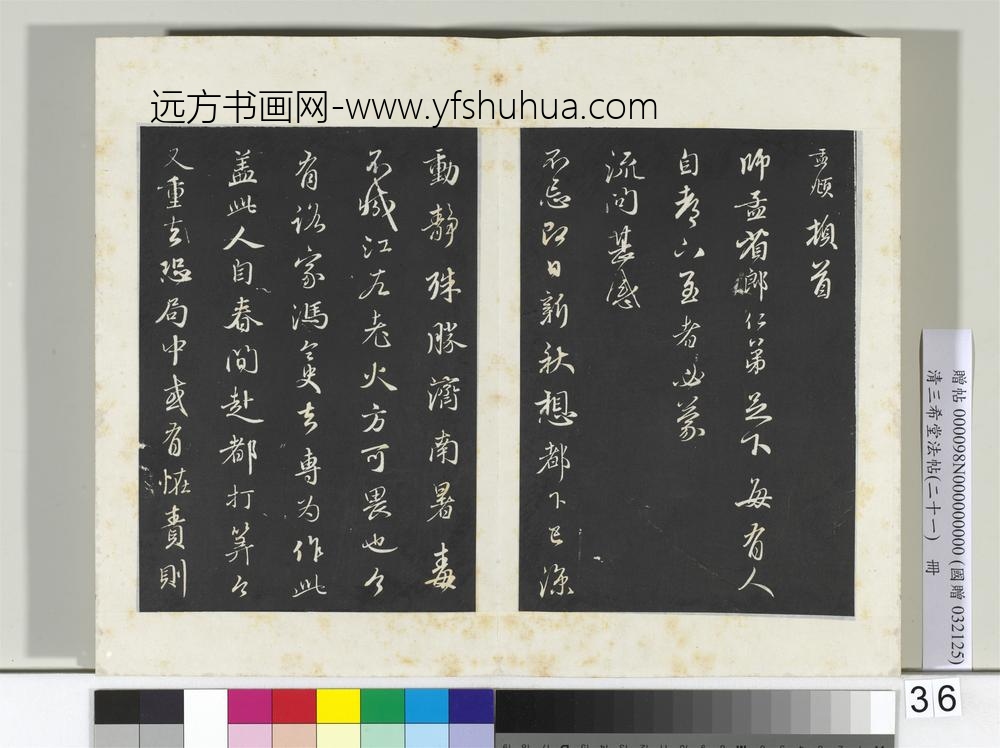 远方书画网-www.yfshuhua.com
孟頫頓首
師孟省郎仁弟足下每有人
自都下至者必蒙
流問甚感
不忘即日新秋想都下已涼
動靜殊勝濟南暑毒
不減江左老火方可畏也今
有路家馮叟去專为作此
盖此人自春間赴都打筭今
又重去恐局中或有恠責則
贈帖 000098N000000000 (國贈 032125)
清三希堂法帖(二十一) 冊
36